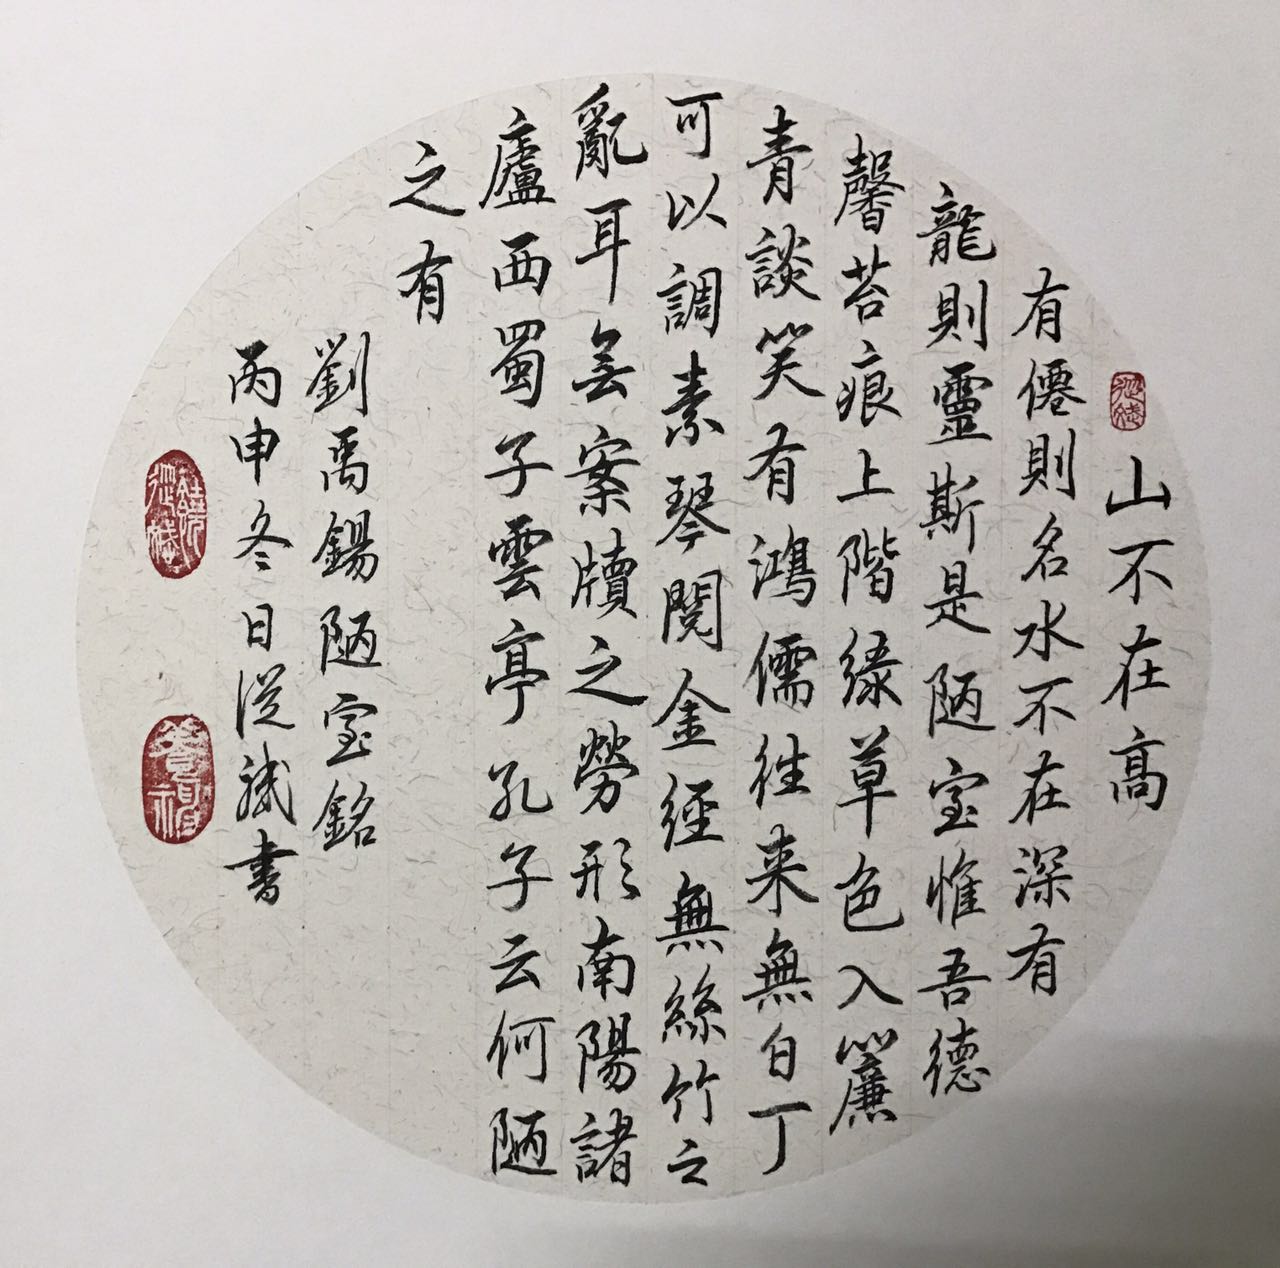 山不在高
有僊則名水不在深有
龍則靈斯是陋室惟吾德
馨苔痕上階緑草色入簾
青談笑有鴻儒往来無白丁
可以調素琴閱金經無絲竹之
亂耳無案牘之勞形南陽諸
廬西蜀子雲亭孔子云何陋
之有
劉禹錫陋室銘
丙申冬日從書